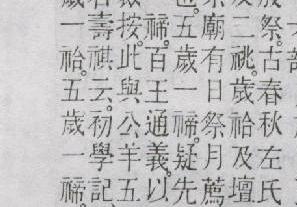 祭。古春秋左氏
二祧。歲祫及壇
廟有日祭月薦
五歲一禘。疑先
禘。百王通義。以
按。此與公羊五
壽祺云。初學記
一祫。五歲一禘。